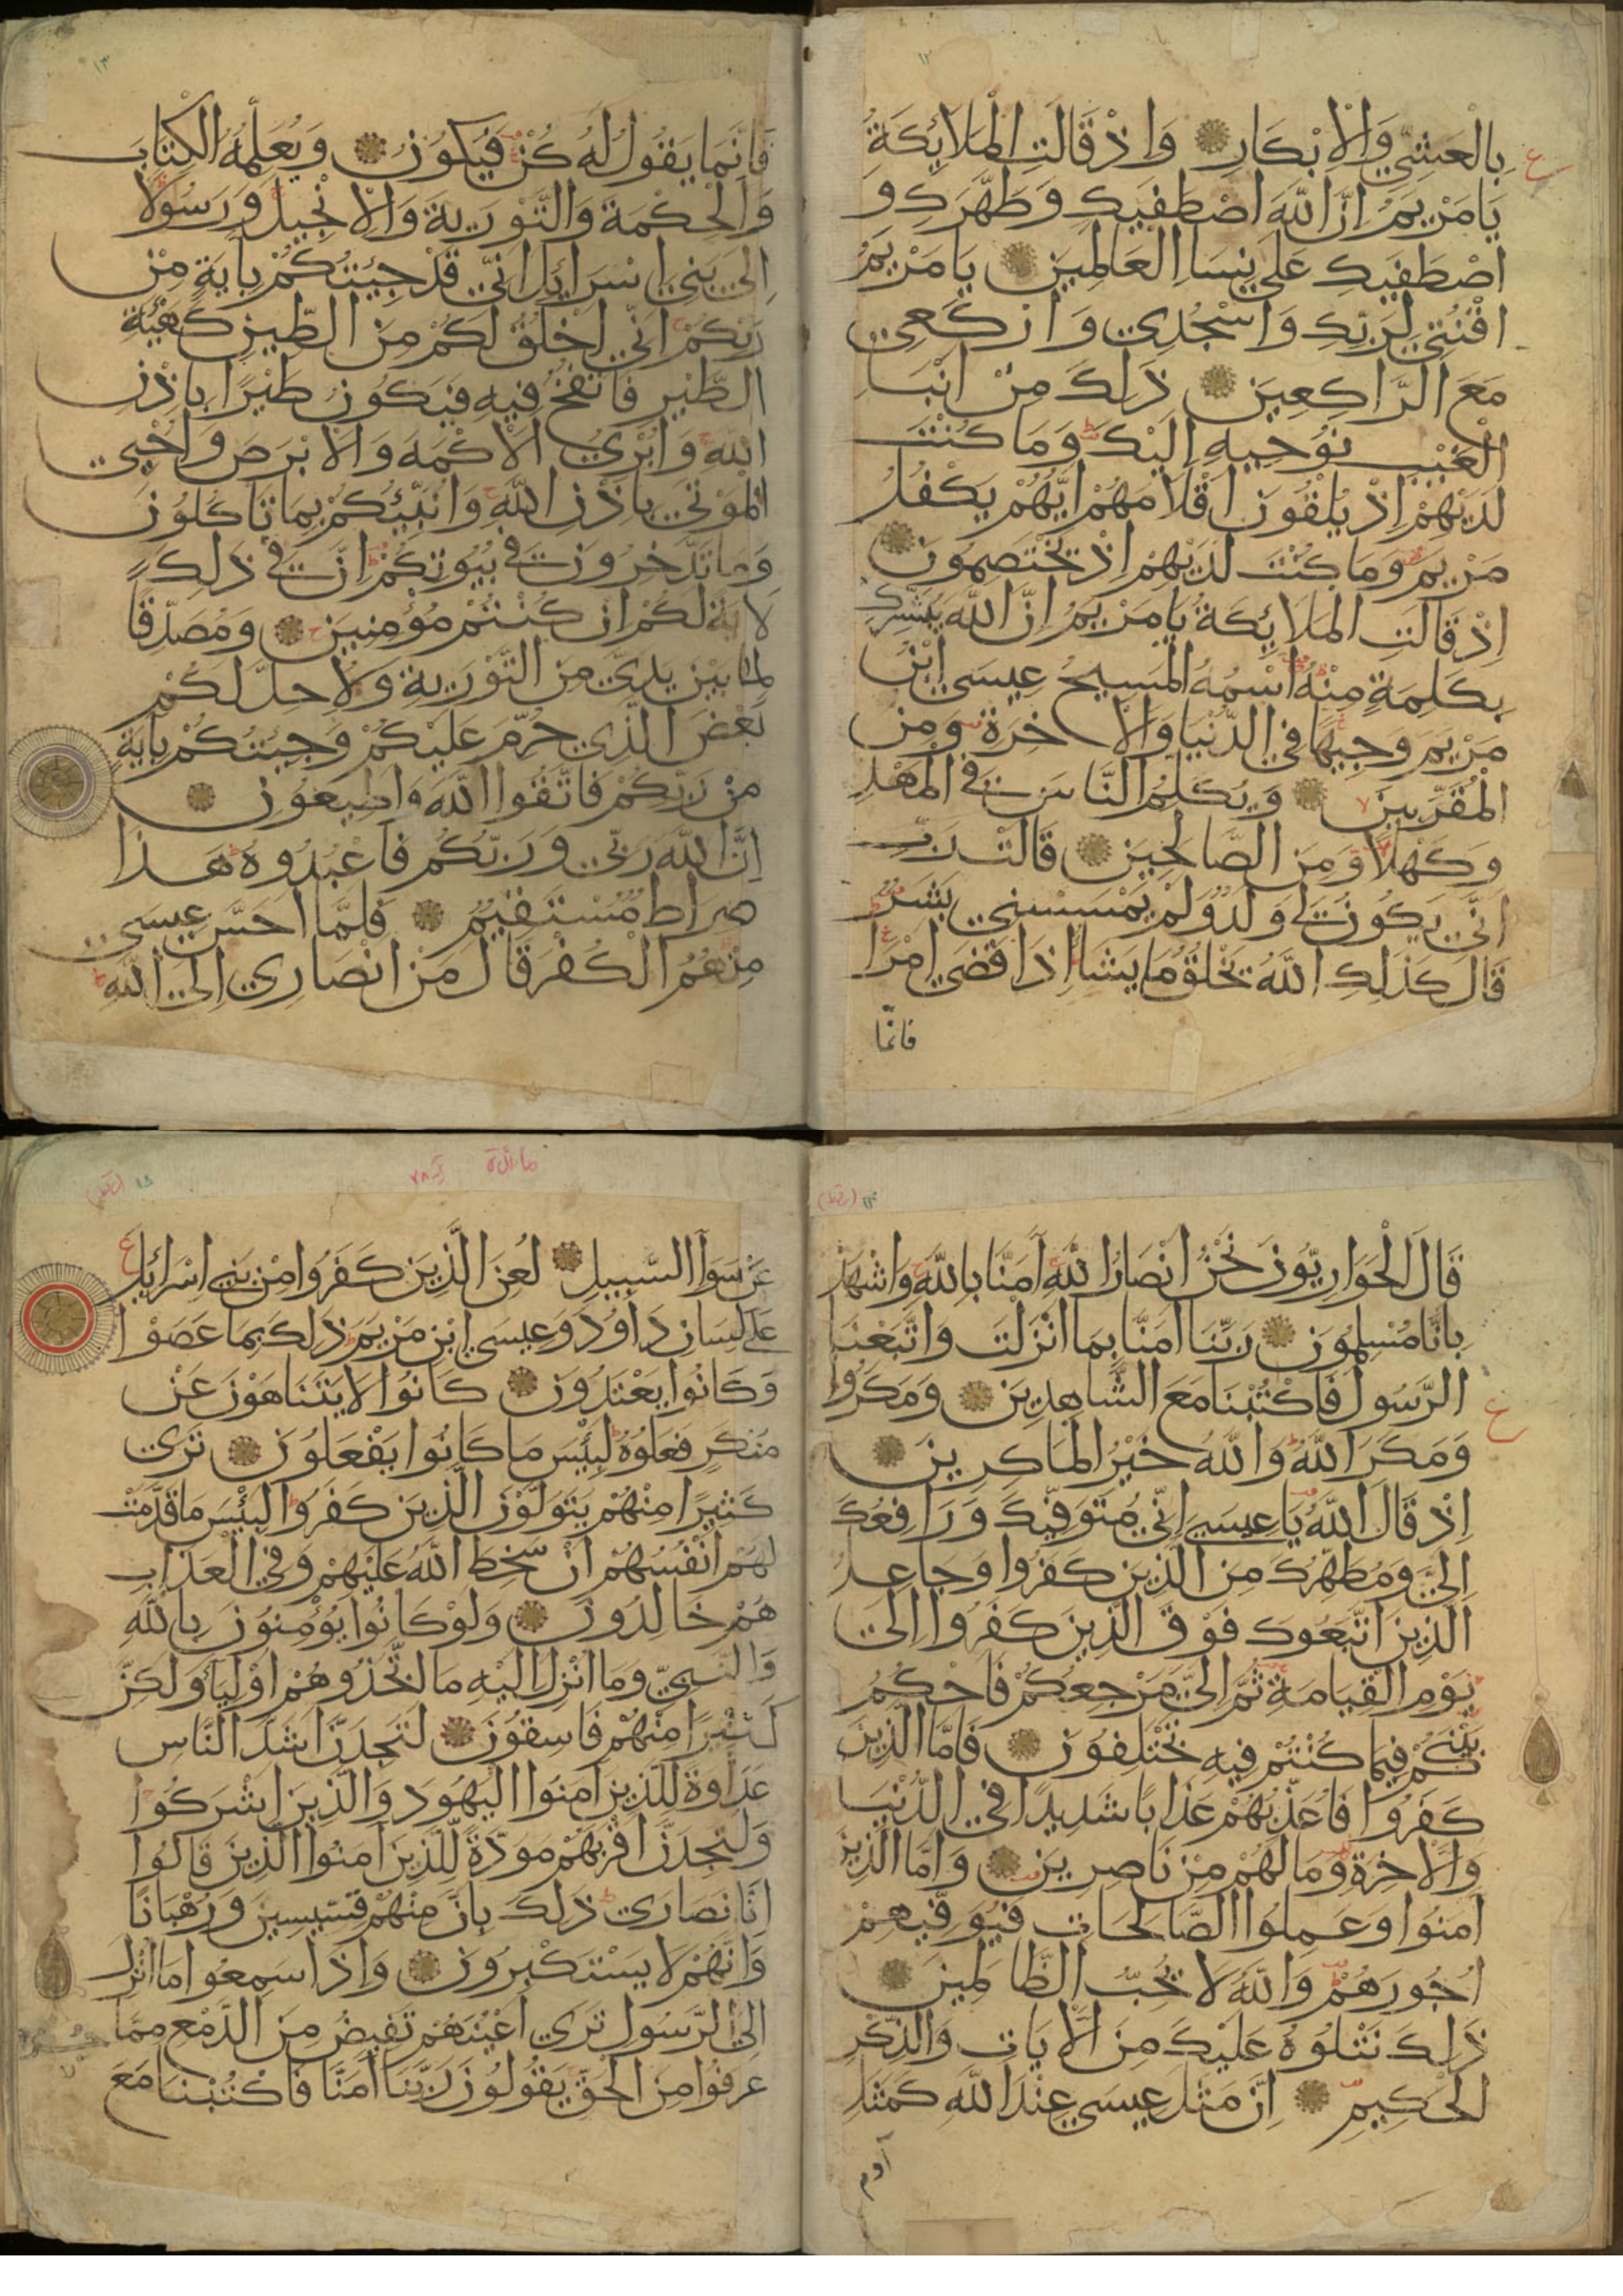 ١٢
بِالْعَشِيِّ وَالْاِبْكَارِ وَاِذْ قَالَتِ الْمَلَائِكَةُ
يَا مَرْيَمُ اِنَّ اللّٰهَ اصْطَفٰيكِ وَطَهَّرَكِ وَ
اصْطَفٰيكِ عَلٰى نِسَا الْعَالَمِينَ يَا مَرْيَمُ
اقْنُتِي لِرَبِّكِ وَاسْجُدِي وَارْكَعِي
مَعَ الرَّاكِعِينَ ذَلِكَ مِنْ اَنْبَا
الْغَيْبِ نُوحِيهِ اِلَيْكَ وَمَا كُنْتَ
لَدَيْهِمْ اِذْ يُلْقُونَ اَقْلَامَهُمْ اَيُّهُمْ يَكْفُلُ
مَرْيَمَ وَمَا كُنْتَ لَدَيْهِمْ اِذْ يَخْتَصِمُونَ
اِذْ قَالَتِ الْمَلَائِكَةُ يَا مَرْيَمُ اِنَّ اللّٰهَ يُبَشِّرُكِ
بِكَلِمَةٍ مِنْهُ اسْمُهُ الْمَسِيحُ عِيسَى ابْنُ
مَرْيَمَ وَجِيهًا فِي الدُّنْيَا وَالْاٰخِرَةِ وَمِنَ
الْمُقَرَّبِينَ وَيُكَلِّمُ النَّاسَ فِي الْمَهْدِ
وَكَهْلًا وَمِنَ الصَّالِحِينَ قَالَتْ رَبِّ
اَنّٰى يَكُونُ لِي وَلَدٌ وَلَمْ يَمْسَسْنِي بَشَرٌ
قَالَ كَذَلِكِ اللّٰهُ يَخْلُقُ مَا يَشَا اِذَا قَضٰى اَمْرًا
فانما
١٣
فَاِنَّمَا يَقُولُ لَهُ كُنْ فَيَكُونُ وَيُعَلِّمُهُ الْكِتَابَ
وَالْحِكْمَةَ وَالتَّوْرٰيةَ وَالْاِنْجِيلَ وَرَسُولًا
اِلٰى بَنِي اِسْرَائِلَ اَنِّي قَدْ جِئْتُكُمْ بِاٰيَةٍ مِنْ
رَبِّكُمْ اَنِّي اَخْلُقُ لَكُمْ مِنَ الطِّينِ كَهَيْئَةِ
الطَّيْرِ فَاَنْفُخُ فِيهِ فَيَكُونُ طَيْرًا بِاِذْنِ
اللّٰهِ وَاُبْرِئُ الْاَكْمَهَ وَالْاَبْرَصَ وَاُحْيِي
الْمَوْتٰى بِاِذْنِ اللّٰهِ وَاُنَبِّئُكُمْ بِمَا تَاْكُلُونَ
وَمَا تَدَّخِرُونَ فِي بُيُوتِكُمْ اِنَّ فِي ذَلِكَ
لَاٰيَةً لَكُمْ اِنْ كُنْتُمْ مُؤْمِنِينَ وَمُصَدِّقًا
لِمَا بَيْنَ يَدَيَّ مِنَ التَّوْرٰيةِ وَلِاُحِلَّ لَكُمْ
بَعْضَ الَّذِي حُرِّمَ عَلَيْكُمْ وَجِئْتُكُمْ بِاٰيَةٍ
مِنْ رَبِّكُمْ فَاتَّقُوا اللّٰهَ وَاَطِيعُونِ
اِنَّ اللّٰهَ رَبِّي وَرَبُّكُمْ فَاعْبُدُوهُ هَذَا
صِرَاطٌ مُسْتَقِيمٌ فَلَمَّا اَحَسَّ عِيسَى
مِنْهُمُ الْكُفْرَ قَالَ مَنْ اَنْصَارِي اِلَى اللّٰهِ
قَالَ الْحَوَارِيُّونَ نَحْنُ اَنْصَارُ اللّٰهِ اٰمَنَّا بِاللّٰهِ وَاشْهَدْ
بِاَنَّا مُسْلِمُونَ رَبَّنَا اٰمَنَّا بِمَا اَنْزَلْتَ وَاتَّبَعْنَا
الرَّسُولَ فَاكْتُبْنَا مَعَ الشَّاهِدِينَ وَمَكَرُوا
وَمَكَرَ اللّٰهُ وَاللّٰهُ خَيْرُ الْمَاكِرِينَ
اِذْ قَالَ اللّٰهُ يَا عِيسٰى اِنِّي مُتَوَفِّيكَ وَرَافِعُكَ
اِلَيَّ وَمُطَهِّرُكَ مِنَ الَّذِينَ كَفَرُوا وَجَاعِلُ
الَّذِينَ اتَّبَعُوكَ فَوْقَ الَّذِينَ كَفَرُوا اِلٰى
يَوْمِ الْقِيَامَةِ ثُمَّ اِلَيَّ مَرْجِعُكُمْ فَاَحْكُمُ
بَيْنَكُمْ فِيمَا كُنْتُمْ فِيهِ تَخْتَلِفُونَ فَاَمَّا الَّذِينَ
كَفَرُوا فَاُعَذِّبُهُمْ عَذَابًا شَدِيدًا فِي الدُّنْيَا
وَالْاٰخِرَةِ وَمَا لَهُمْ مِنْ نَاصِرِينَ وَاَمَّا الَّذِينَ
اٰمَنُوا وَعَمِلُوا الصَّالِحَاتِ فَيُوَفِّيهِمْ
اُجُورَهُمْ وَاللّٰهُ لَا يُحِبُّ الظَّالِمِينَ
ذَلِكَ نَتْلُوهُ عَلَيْكَ مِنَ الْاٰيَاتِ وَالذِّكْرِ
الْحَكِيمِ اِنَّ مَثَلَ عِيسٰى عِنْدَ اللّٰهِ كَمَثَلِ
آدم
مائدة آية ٧٨
عَنْ سَوَا السَّبِيلِ لُعِنَ الَّذِينَ كَفَرُوا مِنْ بَنِي اِسْرَائِلَ
عَلٰى لِسَانِ دَاوُدَ وَعِيسَى ابْنِ مَرْيَمَ ذَلِكَ بِمَا عَصَوْا
وَكَانُوا يَعْتَدُونَ كَانُوا لَا يَتَنَاهَوْنَ عَنْ
مُنْكَرٍ فَعَلُوهُ لَبِئْسَ مَا كَانُوا يَفْعَلُونَ تَرٰى
كَثِيرًا مِنْهُمْ يَتَوَلَّوْنَ الَّذِينَ كَفَرُوا لَبِئْسَ مَا قَدَّمَتْ
لَهُمْ اَنْفُسُهُمْ اَنْ سَخِطَ اللّٰهُ عَلَيْهِمْ وَفِي الْعَذَابِ
هُمْ خَالِدُونَ وَلَوْ كَانُوا يُؤْمِنُونَ بِاللّٰهِ
وَالنَّبِيِّ وَمَا اُنْزِلَ اِلَيْهِ مَا اتَّخَذُوهُمْ اَوْلِيَاَ وَلَكِنَّ
كَثِيرًا مِنْهُمْ فَاسِقُونَ لَتَجِدَنَّ اَشَدَّ النَّاسِ
عَدَاوَةً لِلَّذِينَ اٰمَنُوا الْيَهُودَ وَالَّذِينَ اَشْرَكُوا
وَلَتَجِدَنَّ اَقْرَبَهُمْ مَوَدَّةً لِلَّذِينَ اٰمَنُوا الَّذِينَ قَالُوا
اِنَّا نَصَارٰى ذَلِكَ بِاَنَّ مِنْهُمْ قِسِّيسِينَ وَرُهْبَانًا
وَاَنَّهُمْ لَا يَسْتَكْبِرُونَ وَاِذَا سَمِعُوا مَا اُنْزِلَ
اِلَى الرَّسُولِ تَرٰى اَعْيُنَهُمْ تَفِيضُ مِنَ الدَّمْعِ مِمَّا
عَرَفُوا مِنَ الْحَقِّ يَقُولُونَ رَبَّنَا اٰمَنَّا فَاكْتُبْنَا مَعَ